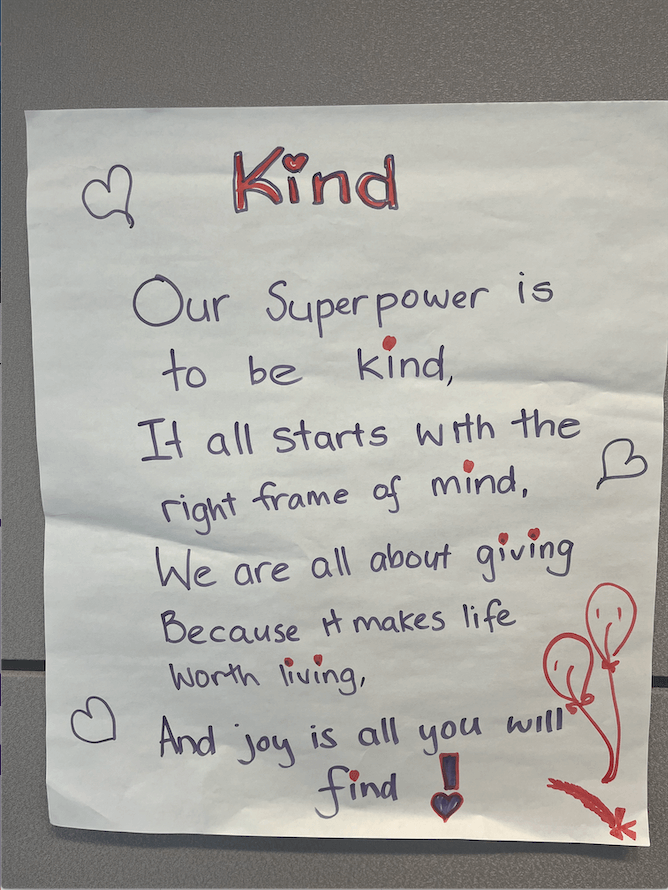 Kind
Our Superpower is
to be kind,
It all starts with the
right frame of mind,
We are all about giving
Because it makes life
worth living,
And joy is all you will
find!